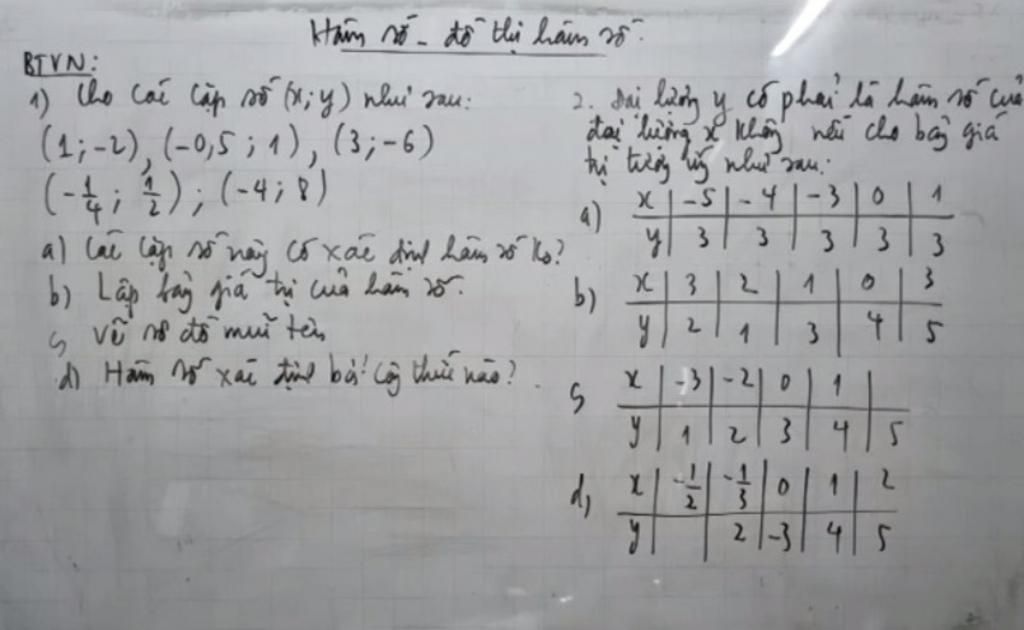 Hàm số - đồ thị hàm số.
BTVN:
1) Cho các cặp số (x; y) như sau:
(1; -2), (-0,5 ; 1), (3; -6)
(-1/4; 1/2); (-4; 8)
a) Các cặp số này có xác định hàm số ko?
b) Lập bảng giá trị của hàm số.
c) Vẽ sơ đồ mũi tên
d) Hàm số xác định bởi công thức nào?
2. Đại lượng y có phải là hàm số của
đại lượng x không nếu cho bảng giá
trị tương ứng như sau:
a) x | -5 | -4 | -3 | 0 | 1
y | 3 | 3 | 3 | 3 | 3
b) x | 3 | 2 | 1 | 0 | 3
y | 2 | 1 | 3 | 4 | 5
c) x | -3 | -2 | 0 | 1 |
y | 1 | 2 | 3 | 4 | 5
d) x | -1/2 | -1/3 | 0 | 1 | 2
y | | 2 | -3 | 4 | 5